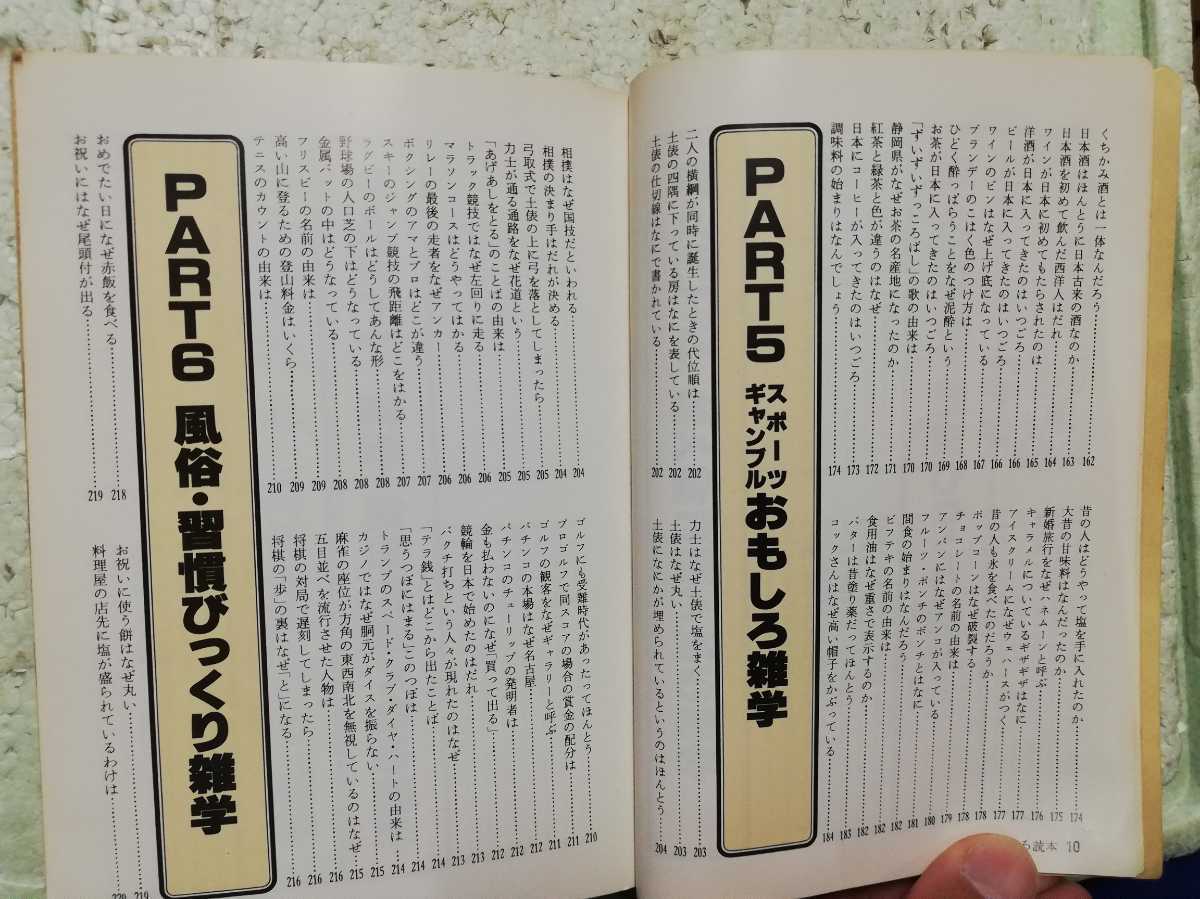 くちかみ酒とは一体なんだろう……162
日本酒はほんとうに日本古来の酒なのか……163
日本酒を初めて飲んだ西洋人はだれ……164
ワインが日本に初めてもたらされたのは……165
洋酒が日本に入ってきたのはいつごろ……166
ビールが日本に入ってきたのはいつごろ……166
ワインのビンはなぜ上げ底になっている……167
ブランデーのこはく色のつけ方は……168
ひどく酔っぱらうことをなぜ泥酔という……169
お茶が日本に入ってきたのはいつごろ……170
「ずいずいずっころばし」の歌の由来は……170
静岡県がなぜお茶の名産地になったのか……171
紅茶と緑茶と色が違うのはなぜ……172
日本にコーヒーが入ってきたのはいつごろ……173
調味料の始まりはなんでしょう……174
昔の人はどうやって塩を手に入れたのか……174
大昔の甘味料はなんだったのか……175
新婚旅行をなぜハネムーンと呼ぶ……176
キャラメルについているギザギザはなに……177
アイスクリームになぜウェハースがつく……177
昔の人も氷を食べたのだろうか……178
ポップコーンはなぜ破裂する……178
チョコレートの名前の由来は……178
アンパンにはなぜアンコが入っている……179
フルーツ・ポンチのポンチとはなに……180
間食の始まりはなんだろう……181
ビフテキの名前の由来は……182
食用油はなぜ重さで表示するのか……182
バターは昔塗り薬だってほんとう……183
コックさんはなぜ高い帽子をかぶっている……184
PART5 スポーツ ギャンブル おもしろ雑学
二人の横綱が同時に誕生したときの代位順は……202
土俵の四隅に下っている房はなにを表している……202
土俵の仕切線はなにで書かれている……202
力士はなぜ土俵で塩をまく……203
土俵はなぜ丸い……203
土俵になにかが埋められているというのはほんとう……204
る読本 10
相撲はなぜ国技だといわれる……204
相撲の決まり手はだれが決める……205
弓取式で土俵の上に弓を落としてしまったら……205
力士が通る通路をなぜ花道という……205
「あげあしをとる」のことばの由来は……206
トラック競技ではなぜ左回りに走る……206
マラソンコースはどうやってはかる……206
リレーの最後の走者をなぜアンカー……207
ボクシングのアマとプロはどこが違う……207
スキーのジャンプ競技の飛距離はどこをはかる……208
ラグビーのボールはどうしてあんな形……208
野球場の人口芝の下はどうなっている……208
金属バットの中はどうなっている……208
フリスビーの名前の由来は……209
高い山に登るための登山料金はいくら……209
テニスのカウントの由来は……210
ゴルフにも受難時代があったってほんとう……210
プロゴルフで同スコアの場合の賞金の配分は……211
ゴルフの観客をなぜギャラリーと呼ぶ……211
パチンコの本場はなぜ名古屋……212
パチンコのチューリップの発明者は……212
金も払わないのになぜ「買って出る」……212
競輪を日本で始めたのはだれ……212
バクチ打ちという人々が現れたのはなぜ……213
「テラ銭」とはどこから出たことば……213
「思うつぼにはまる」このつぼは……214
トランプのスペード・クラブ・ダイヤ・ハートの由来は……214
カジノではなぜ胴元がダイスを振らない……214
麻雀の座位が方角の東西南北を無視しているのはなぜ……215
五目並べを流行させた人物は……215
将棋の対局で遅刻してしまったら……216
将棋の「歩」の裏はなぜ「と」になる……216
PART6 風俗・習慣びっくり雑学
おめでたい日になぜ赤飯を食べる……218
お祝いにはなぜ尾頭付が出る……219
お祝いに使う餅はなぜ丸い……219
料理屋の店先に塩が盛られているわけは……220